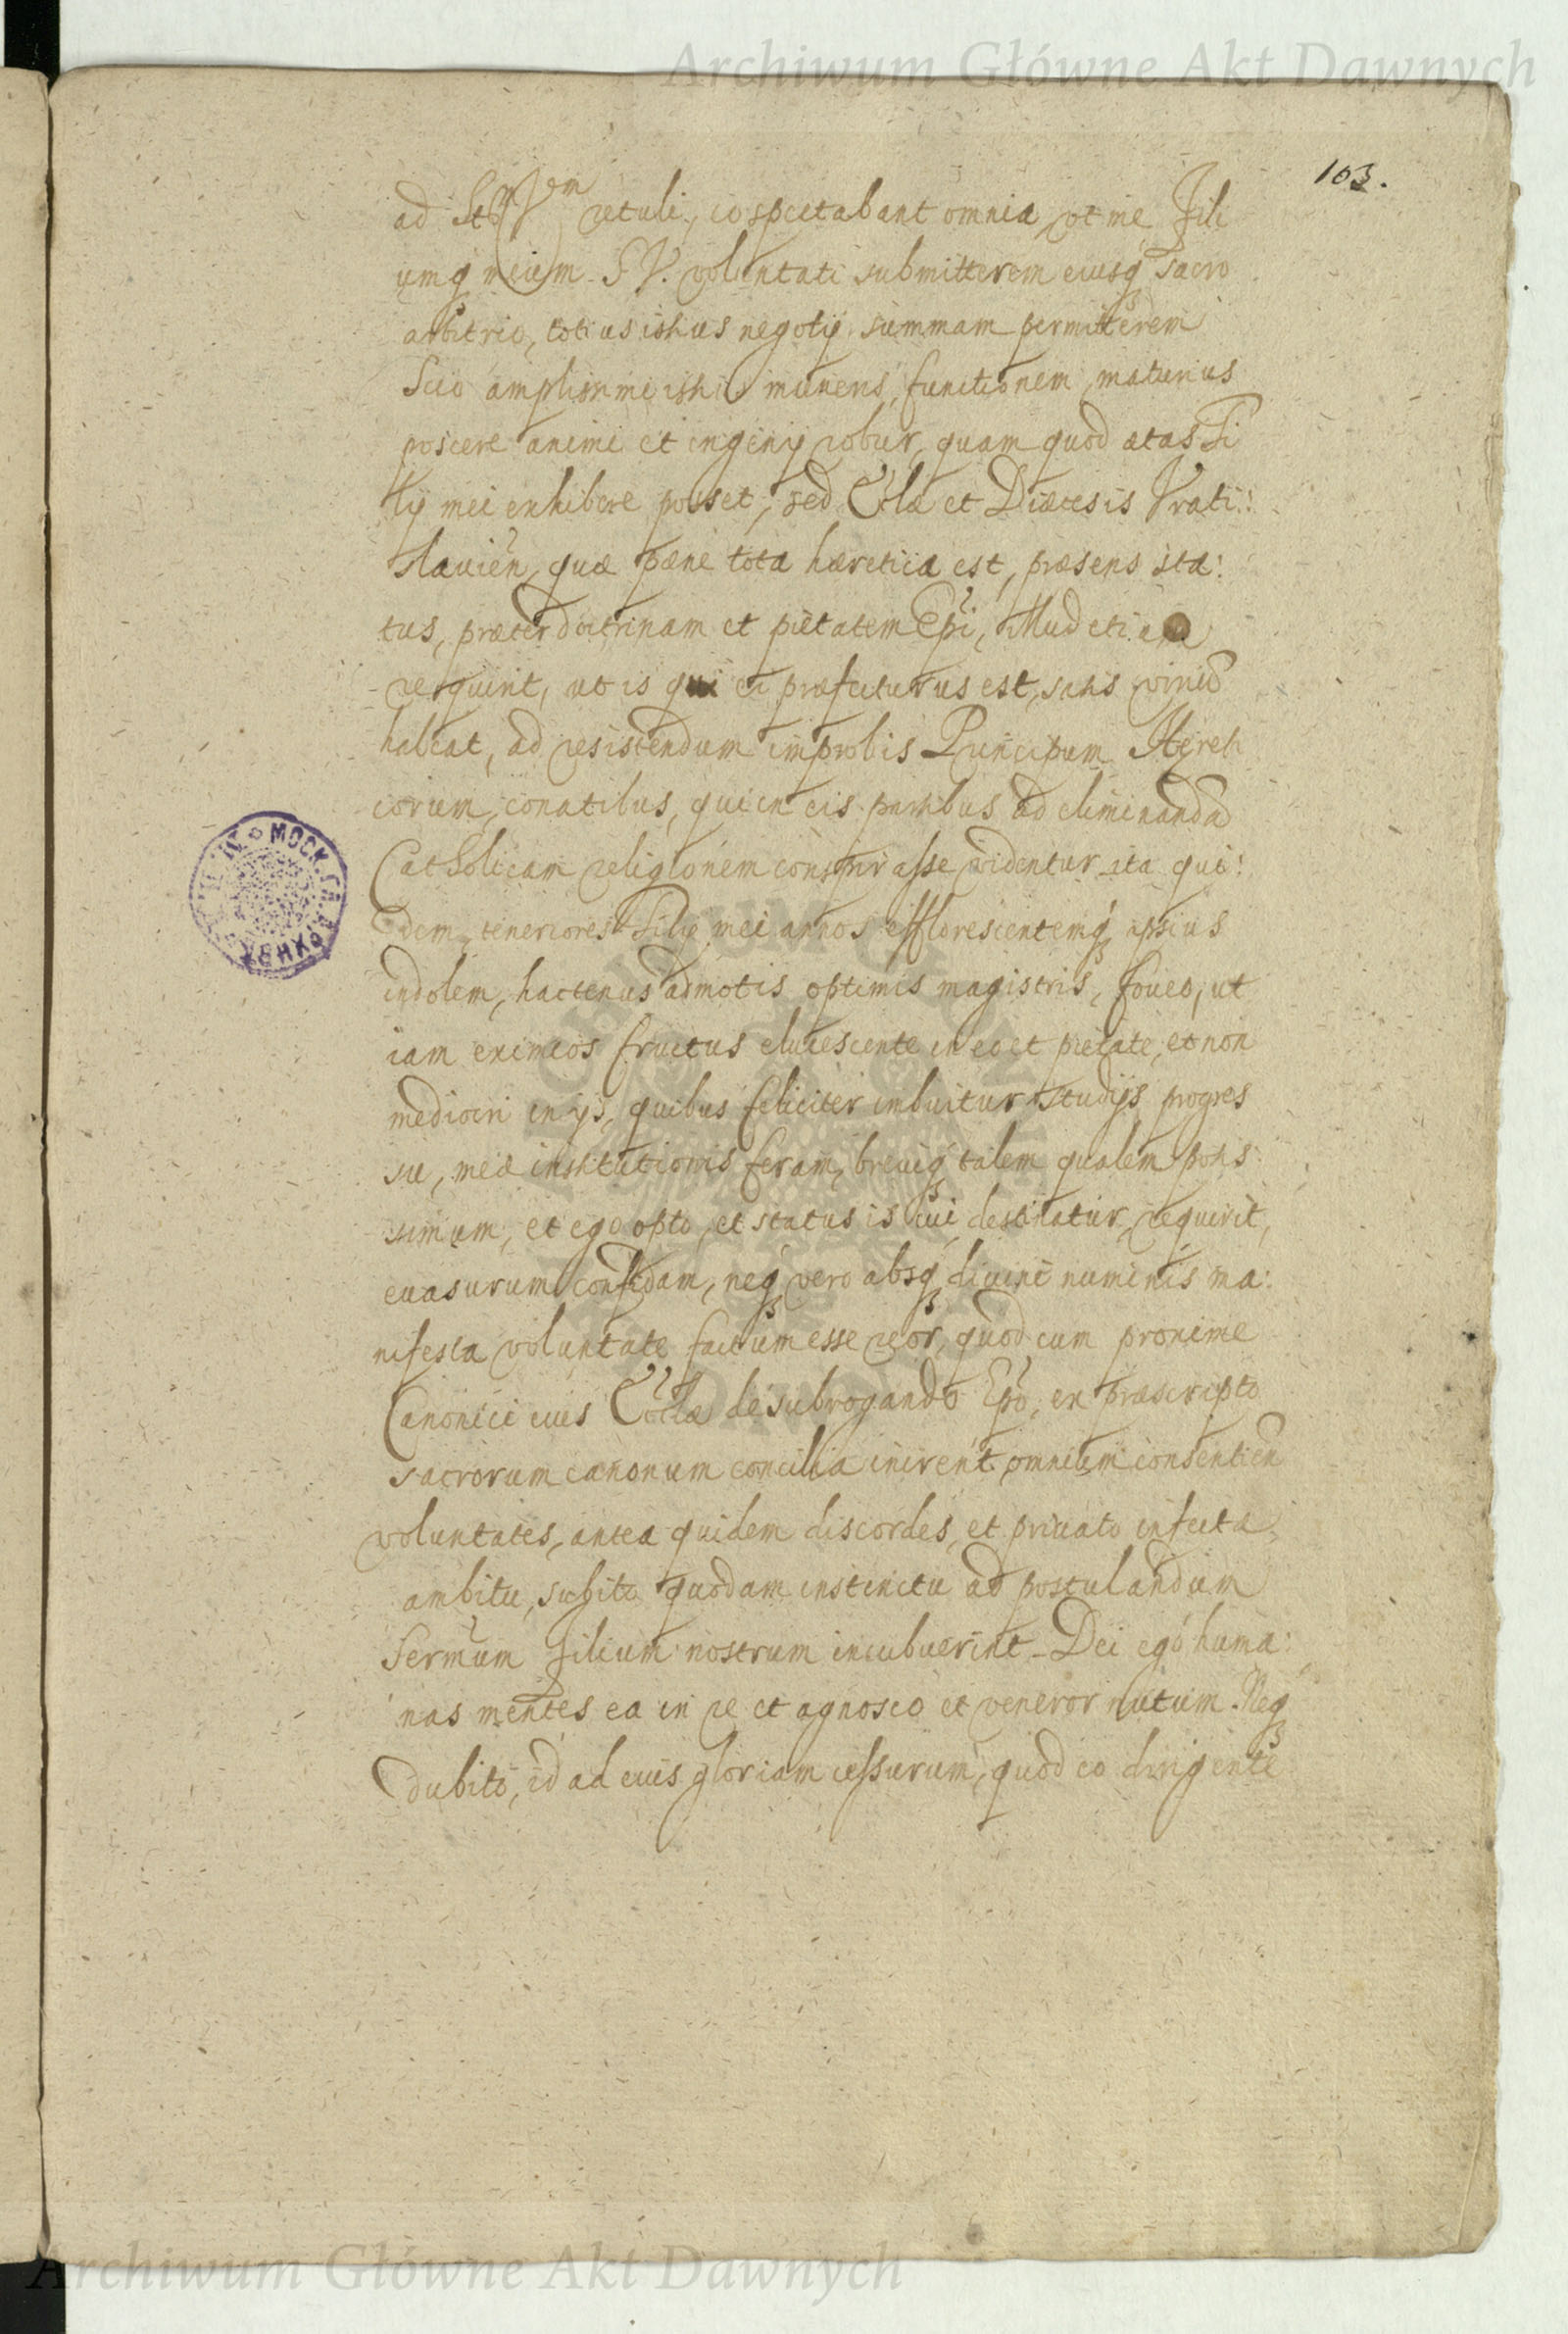 Archiwum Główne Akt Dawnych
103.
ad Stt V em retuli, eo spectabant omnia, ut me Fili
umq meum S. V. voluntati submitterem eiusq sacro
arbitrio, totius istius negotij summam permitterem
Scio amplissimi istius muneris, functionem, maturius
poscere animi et ingenij robur, quam quod ætas Fi
lij mei exhibere posset, sed Ecclæ et Diæcesis Vrati:
slauien, quæ pæne tota hæretica est, præsens sta:
tus, præter doctrinam et pietatem Epi, illud etiam
requirit, ut is qui ei præfecturus est, satis viriũ
habeat, ad resistendum improbis Principum Hæreti
corum, conatibus, qui in eis partibus ad eliminandã
Catholicam religionem conspirasse videntur ita qui:
dem, teneriores Filij mei annos efflorescentemq ipsius
indolem, hactenus admotis optimis magistris, foueo, ut
iam eximios fructus elucescente in eo et pietate, et non
mediocri in ijs, quibus feliciter imbuitur studijs progres
su, meæ institutionis feram, breuiq talem qualem potis
simum, et ego opto, et status is cui destinatur, requirit,
euasurum confidam, neq vero absq diuini numinis ma:
nifesta voluntate factum esse reor, quod cum proxime
Canonici eius Ecclæ de subrogando Epo, ex præscripto
sacrorum canonum concilia inirent omnium consentien
voluntates, antea quidem discordes, et priuato infecta
ambitu, subito quodam instinctu ad postulandum
Sermum Filium nostrum incubuerint _ Dei ego huma:
nas mentes ea in re et agnosco et veneror nutum. Neq
dubito, id ad eius gloriam cessurum, quod eo dirigente
Archiwum Główne Akt Dawnych